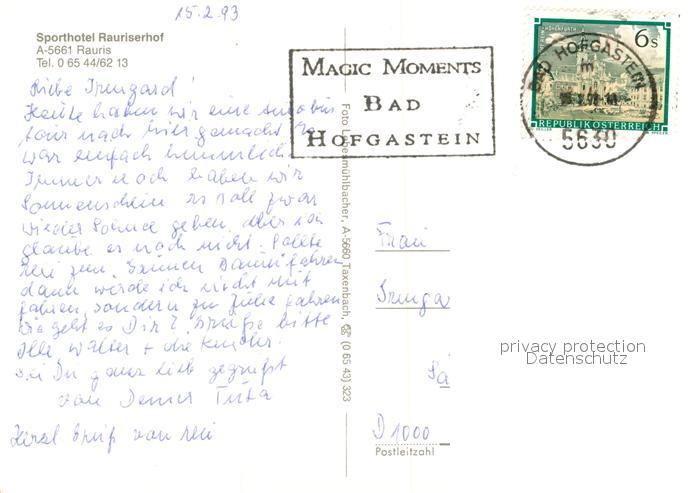 15.2.93
Sporthotel Rauriserhof
A-5661 Rauris
Tel. 0 65 44/62 13
MAGIC MOMENTS
BAD
HOFGASTEIN
6s
BAD HOFGASTEIN
5630
REPUBLIK ÖSTERREICH
Liebe Irmgard!
Heute haben wir eine Autobus
tour nach hier gemacht. Es
war einfach himmlisch.
Immer noch haben wir
Sonnenschein es soll zwar
wieder geben, aber ich
glaube es noch nicht. Sollte
Resi zum "Grünen Baum" fahren
dann werde ich nicht mit
fahren, sondern zu fahren
Wie geht es Dir? Grüße bitte
alle Walter + die Kinder.
Sei Du ganz lieb gegrüßt
von Deiner Tuta
Herzl Gruß von
Foto Landesmühlbacher, A-5660 Taxenbach, (0 65 43) 323
Frau
Irmga
D 1000
Postleitzahl
privacy protection
Datenschutz